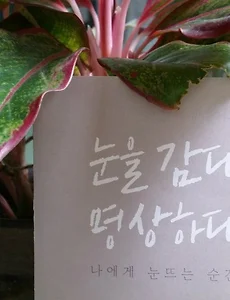 눈을 감다
명상하다
나에게 눈뜨는 순간